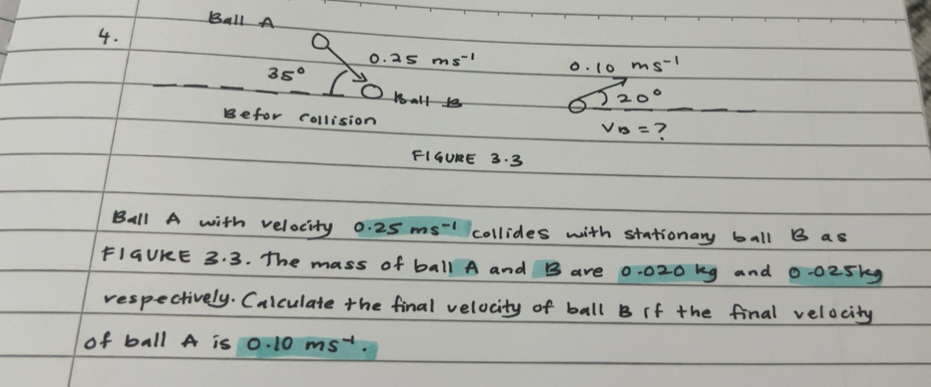 4.
Ball A
0.25 ms⁻¹
35°
Ball B
Befor collision
0.10 ms⁻¹
20°
VB = ?
FIGURE 3.3
Ball A with velocity 0.25 ms⁻¹ collides with stationary ball B as
FIGURE 3.3. The mass of ball A and B are 0.020 kg and 0.025kg
respectively. Calculate the final velocity of ball B if the final velocity
of ball A is 0.10 ms⁻¹.